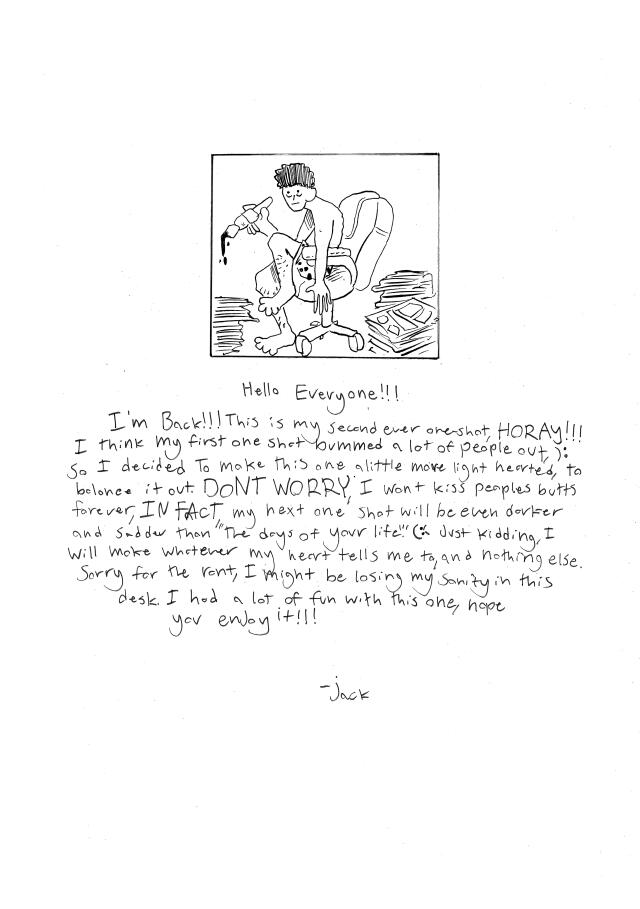 Hello Everyone!!!
I'm Back!!! This is my second ever one-shot, HORAY!!!
I think my first one shot bummed a lot of people out, ):
So I decided To make this one alittle more light hearted, to
balance it out. DONT WORRY, I wont kiss peoples butts
forever, IN FACT, my next one shot will be even darker
and sadder than "The days of your life!" (: Just kidding, I
will make whatever my heart tells me to, and nothing else.
Sorry for the rant, I might be losing my sanity in this
desk. I had a lot of fun with this one, hope
you enjoy it!!!
-Jack